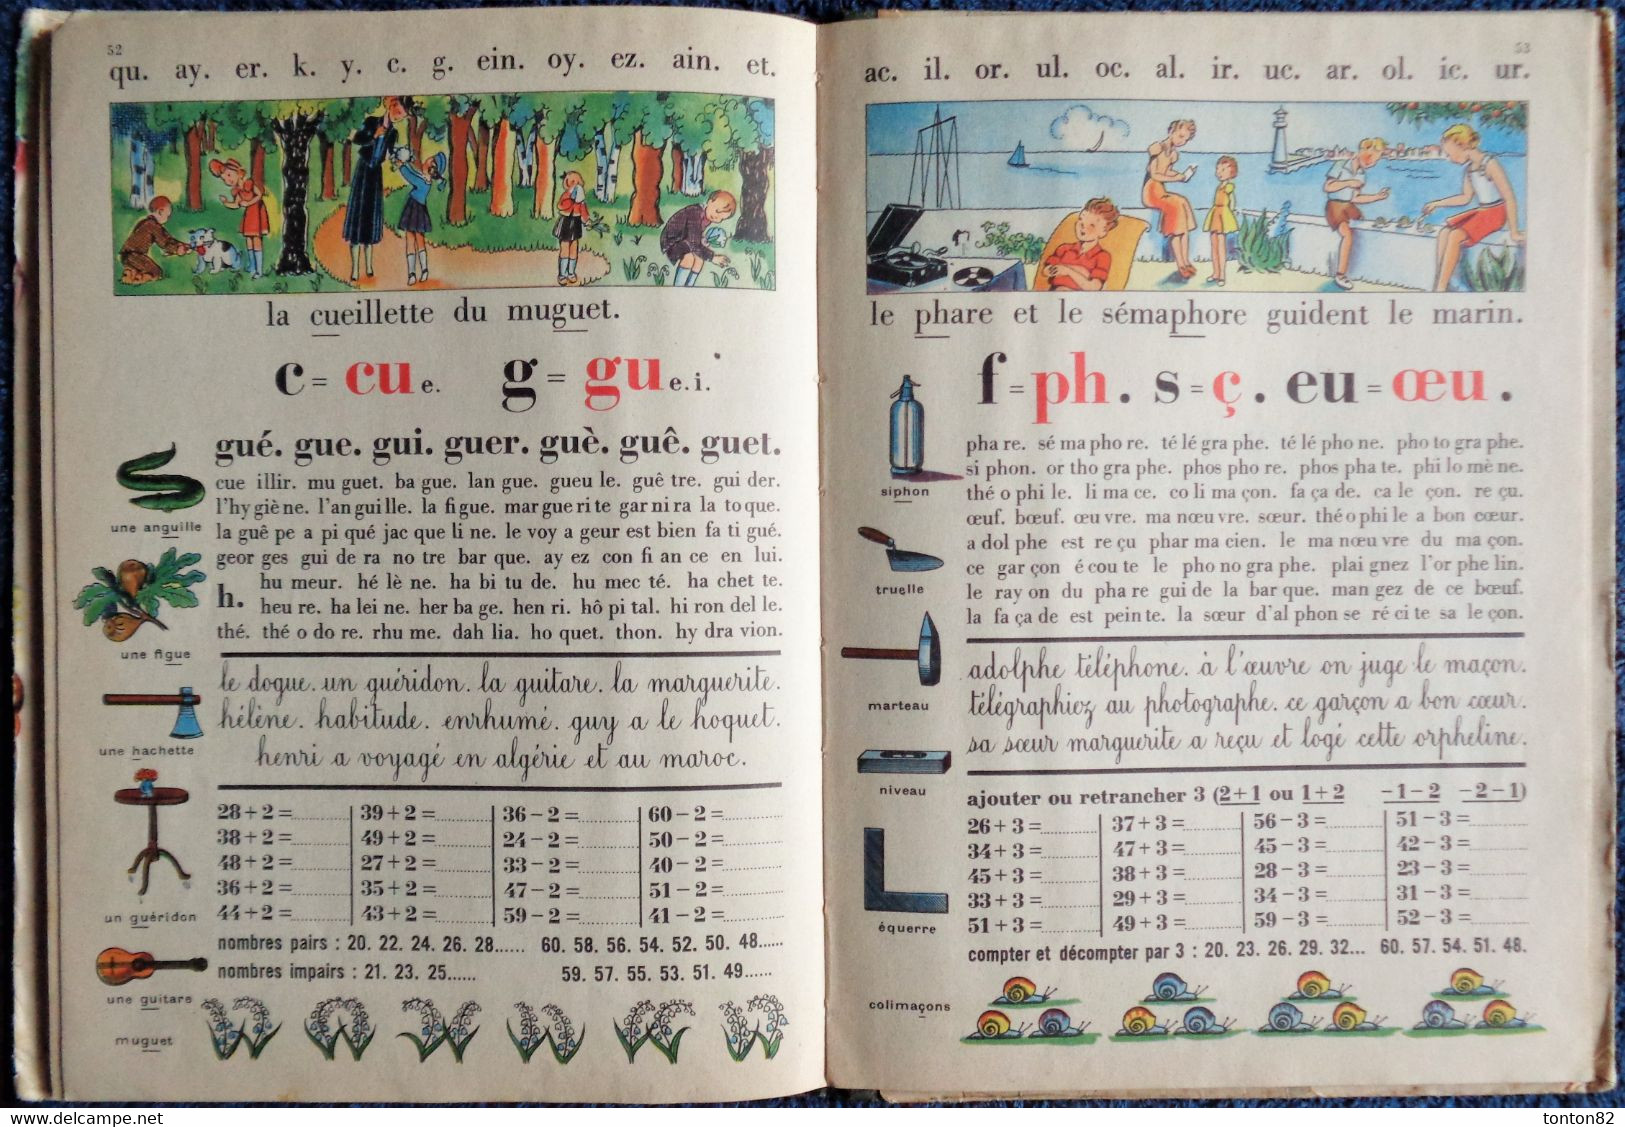 52
qu. ay. er. k. y. c. g. ein. oy. ez. ain. et.
la cueillette du muguet.
c = cu e. g = gu e.i.
gué. gue. gui. guer. guè. guê. guet.
cue illir. mu guet. ba gue. lan gue. gueu le. guê tre. gui der.
l'hy giè ne. l'an gui lle. la fi gue. mar gue ri te gar ni ra la to que.
la guê pe a pi qué jac que li ne. le voy a geur est bien fa ti gué.
geor ges gui de ra no tre bar que. ay ez con fi an ce en lui.
h. hu meur. hé lè ne. ha bi tu de. hu mec té. ha chet te.
heu re. ha lei ne. her ba ge. hen ri. hô pi tal. hi ron del le.
thé. thé o do re. rhu me. dah lia. ho quet. thon. hy dra vion.
une anguille
une figue
une hachette
un guéridon
une guitare
muguet
le dogue. un guéridon. la guitare. la marguerite.
hélène. habitude. enrhumé. guy a le hoquet.
henri a voyagé en algérie et au maroc.
28 + 2 = 39 + 2 = 36 - 2 = 60 - 2 =
38 + 2 = 49 + 2 = 24 - 2 = 50 - 2 =
48 + 2 = 27 + 2 = 33 - 2 = 40 - 2 =
36 + 2 = 35 + 2 = 47 - 2 = 51 - 2 =
44 + 2 = 43 + 2 = 59 - 2 = 41 - 2 =
nombres pairs : 20. 22. 24. 26. 28...... 60. 58. 56. 54. 52. 50. 48......
nombres impairs : 21. 23. 25...... 59. 57. 55. 53. 51. 49......
53
ac. il. or. ul. oc. al. ir. uc. ar. ol. ic. ur.
le phare et le sémaphore guident le marin.
f = ph. s = ç. eu = œu.
pha re. sé ma pho re. té lé gra phe. té lé pho ne. pho to gra phe.
si phon. or tho gra phe. phos pho re. phos pha te. phi lo mè ne.
thé o phi le. li ma ce. co li ma çon. fa ça de. ca le çon. re çu.
œuf. bœuf. œu vre. ma nœu vre. sœur. thé o phi le a bon cœur.
a dol phe est re çu phar ma cien. le ma nœu vre du ma çon.
ce gar çon é cou te le pho no gra phe. plai gnez l'or phe lin.
le ray on du pha re gui de la bar que. man gez de ce bœuf.
la fa ça de est pein te. la sœur d'al phon se ré ci te sa le çon.
siphon
truelle
marteau
niveau
équerre
colimaçons
adolphe téléphone. à l'œuvre on juge le maçon.
télégraphiez au photographe. ce garçon a bon cœur.
sa sœur marguerite a reçu et logé cette orpheline.
ajouter ou retrancher 3 (2+1 ou 1+2 -1-2 -2-1)
26 + 3 = 37 + 3 = 56 - 3 = 51 - 3 =
34 + 3 = 47 + 3 = 45 - 3 = 42 - 3 =
45 + 3 = 38 + 3 = 28 - 3 = 23 - 3 =
33 + 3 = 29 + 3 = 34 - 3 = 31 - 3 =
51 + 3 = 49 + 3 = 59 - 3 = 52 - 3 =
compter et décompter par 3 : 20. 23. 26. 29. 32... 60. 57. 54. 51. 48.
tonton82